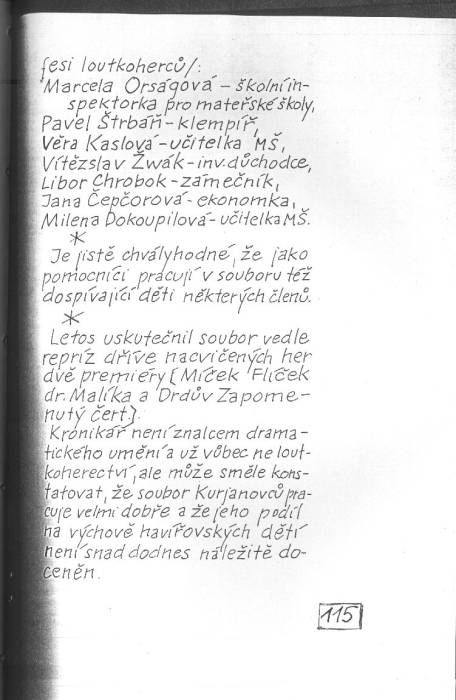 fesí loutkoherců/:
Marcela Orságová – školní in-
spektorka pro mateřské školy,
Pavel Štrbáň – klempíř,
Věra Kaslová – učitelka MŠ,
Vítězslav Žwak – inv. důchodce,
Libor Chrobok – zámečník,
Jana Čepčorová – ekonomka,
Milena Dokoupilová – učitelka MŠ.
*
Je jistě chvályhodné, že jako
pomocníci pracují v souboru též
dospívající děti některých členů.
*
Letos uskutečnil soubor vedle
repríz dříve nacvičených her
dvě premiéry (Míček Flíček
dr. Malíka a Drdův Zapome-
nutý čert).
Kronikář není znalcem drama-
tického umění a už vůbec ne lout-
koherectví, ale může směle kons-
tatovat, že soubor Kurjanovců pra-
cuje velmi dobře a že jeho podíl
na výchově havířovských dětí
není snad dodnes náležitě do-
ceněn.
115